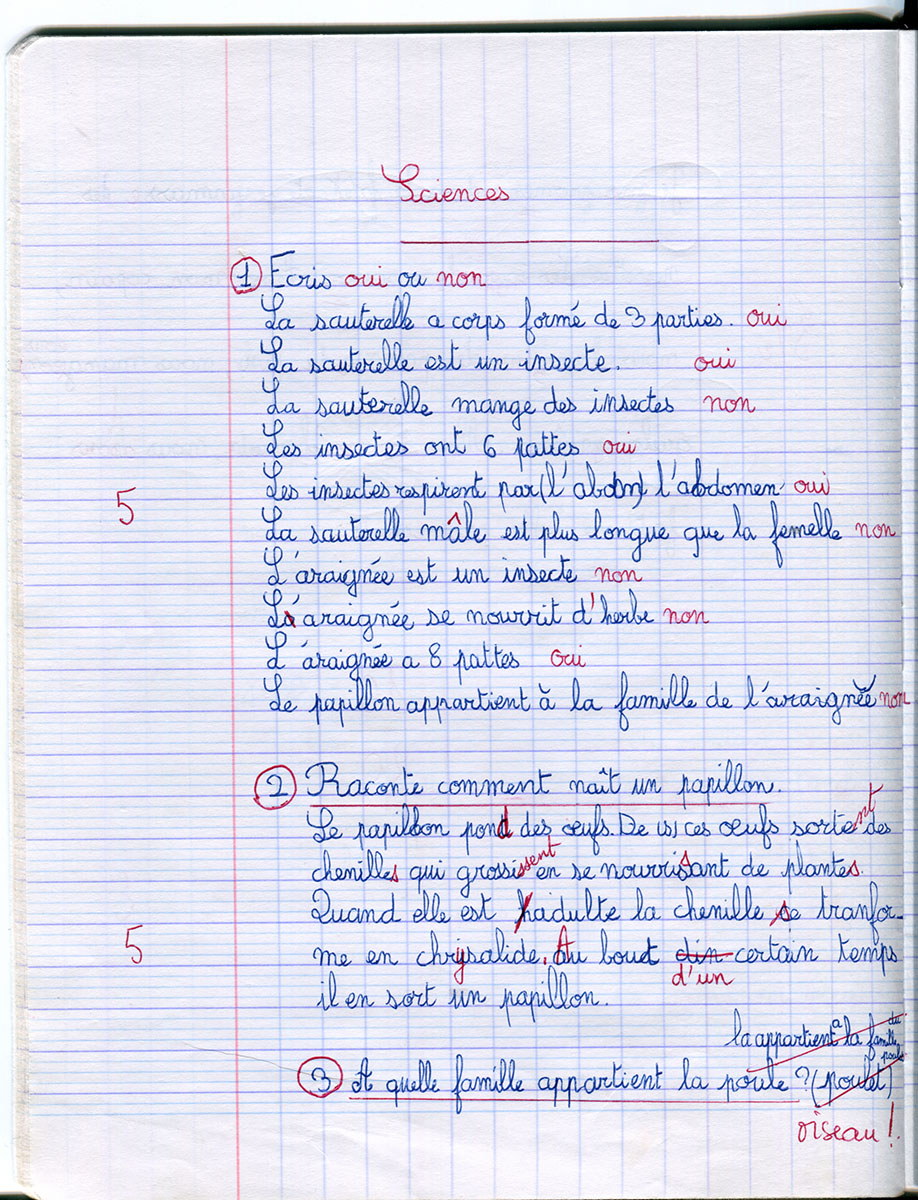 Sciences
1 Ecris oui ou non
La sauterelle a corps formé de 3 parties. oui
La sauterelle est un insecte. oui
La sauterelle mange des insectes non
Les insectes ont 6 pattes oui
Les insectes respirent par (l'abdm) l'abdomen oui
La sauterelle mâle est plus longue que la femelle non
L'araignée est un insecte non
L'araignée se nourrit d'herbe non
L'araignée a 8 pattes oui
Le papillon appartient à la famille de l'araignée non
5
2 Raconte comment naît un papillon.
Le papillon pond des œufs. De (s) ces œufs sortent des
chenilles qui grossissent en se nourrissant de plantes.
Quand elle est adulte la chenille se tranfor-
me en chrysalide. Au bout din certain temps
d'un
il en sort un papillon.
5
la appartient a la famille du poule
3 A quelle famille appartient la poule ? (poulet)
oiseau !